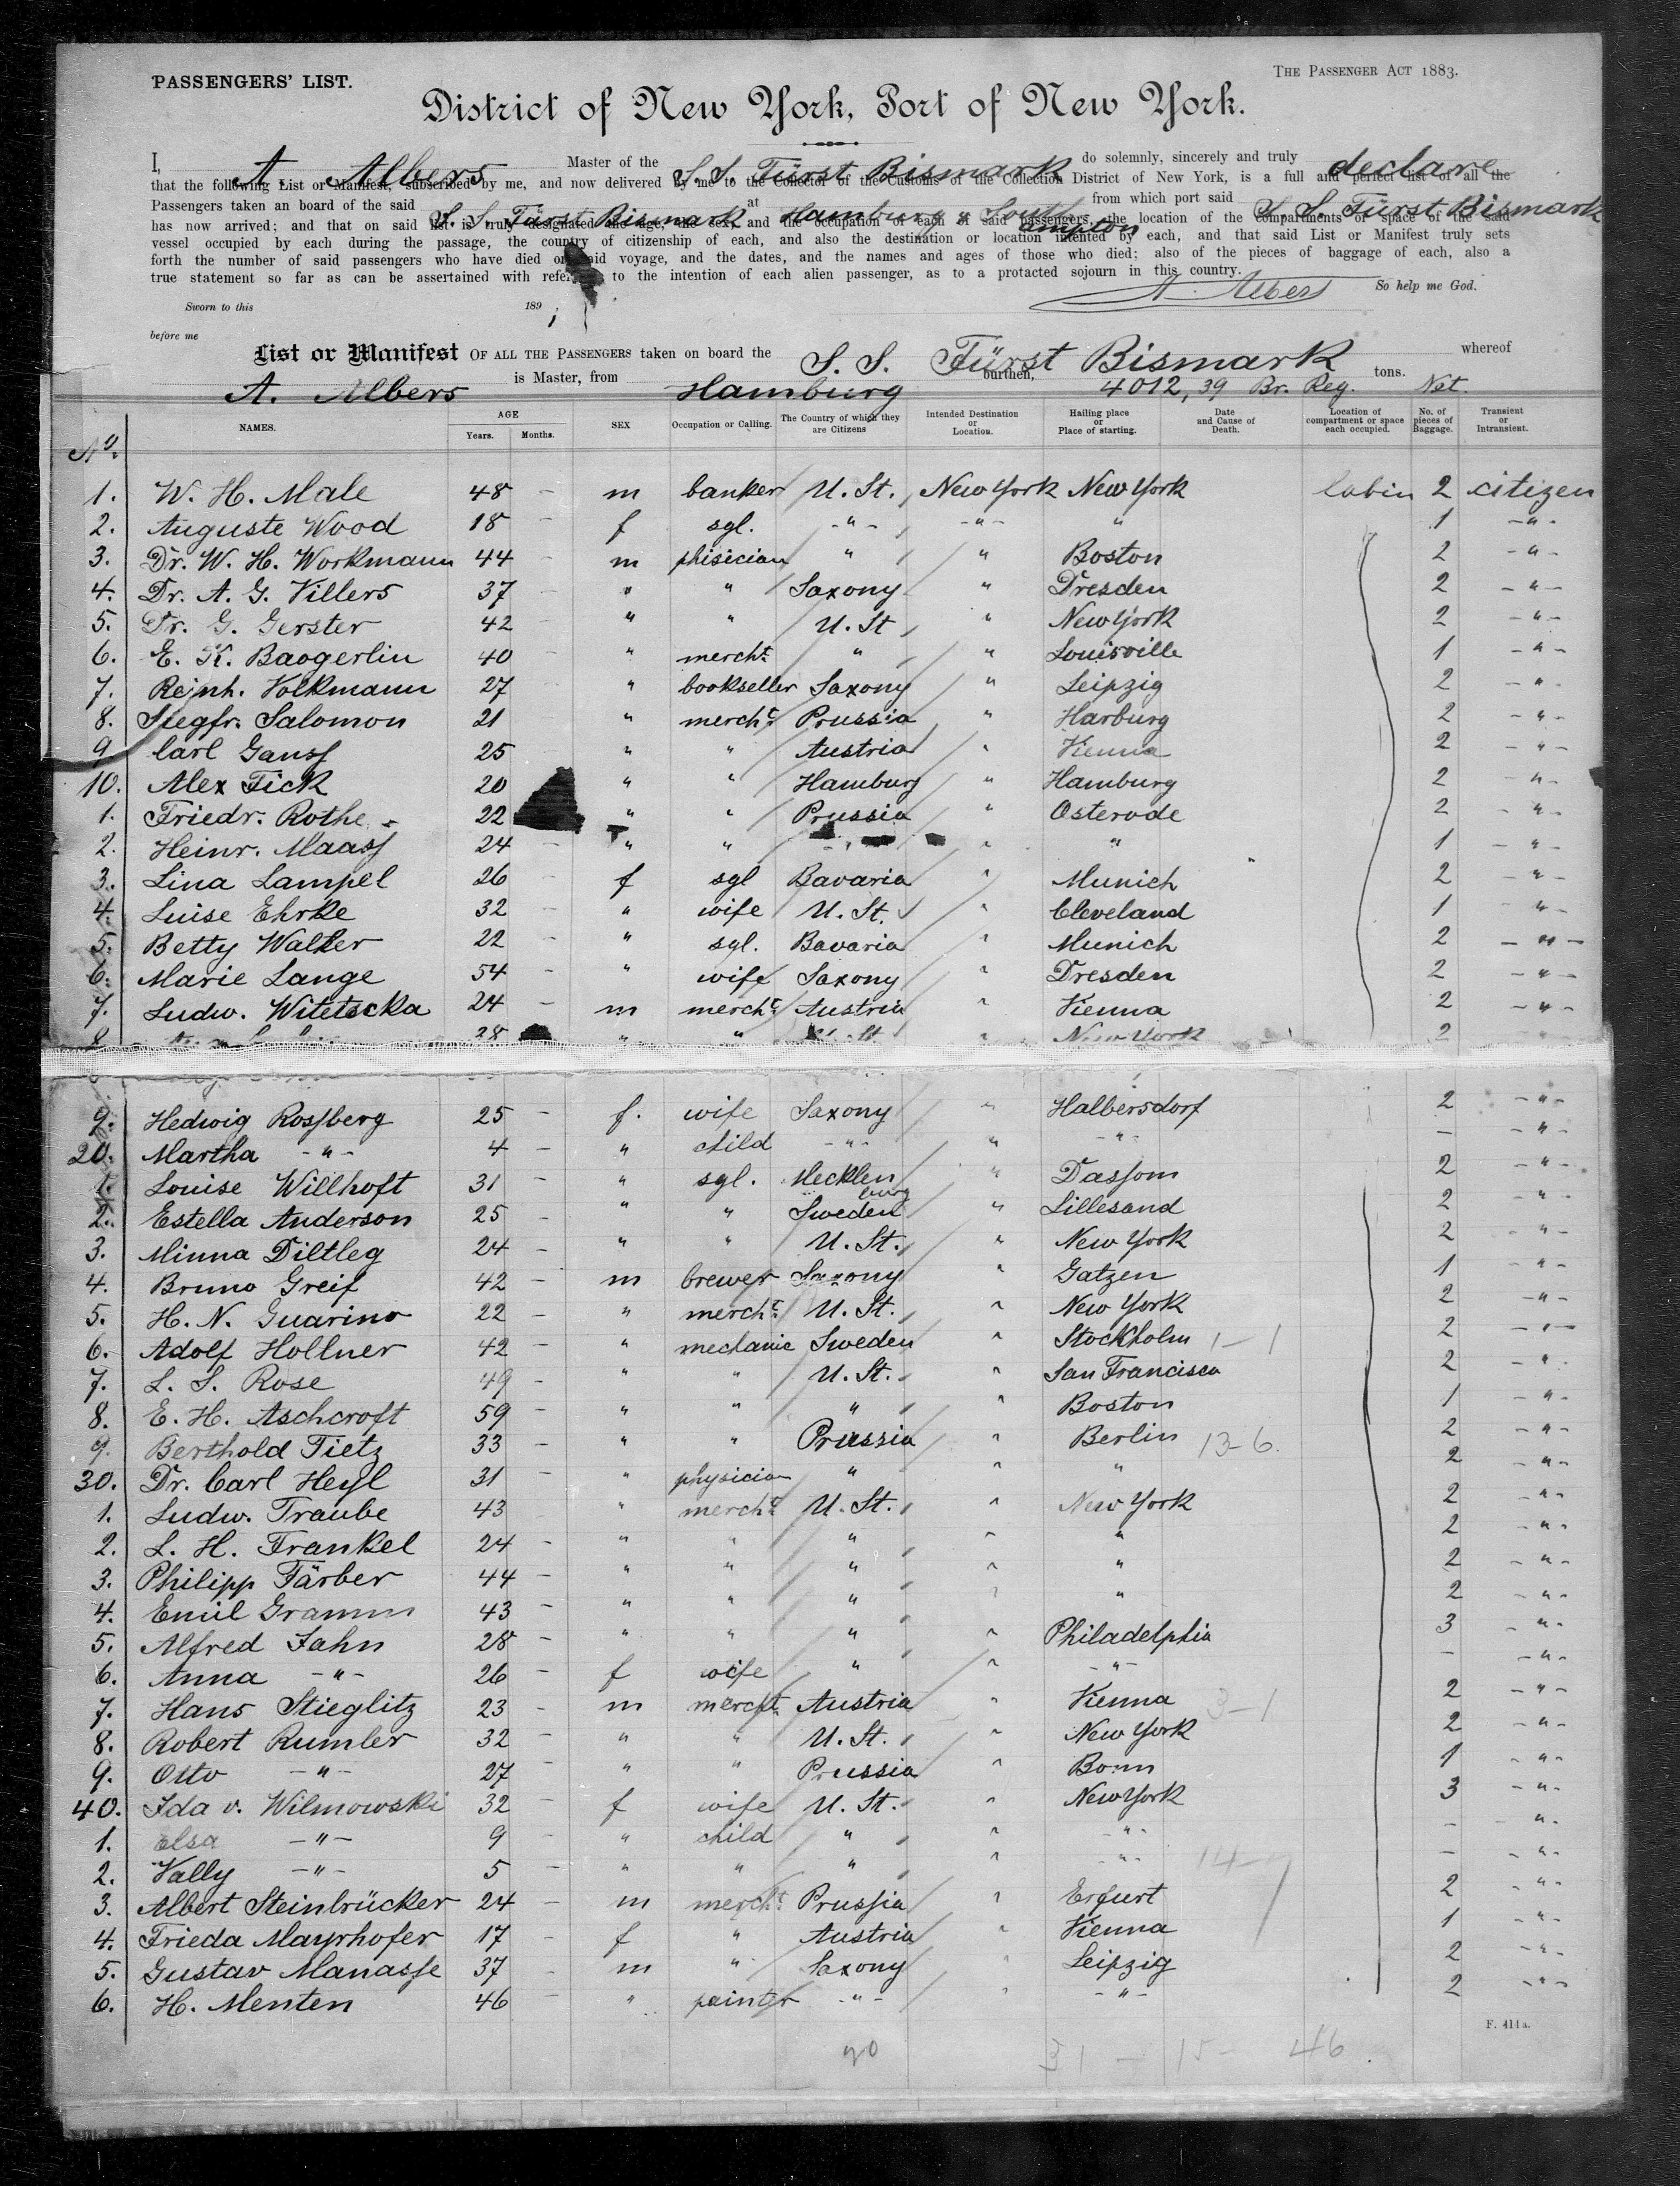 PASSENGERS' LIST.
THE PASSENGER ACT 1883.
District of New York, Port of New York.
I, A. Albers Master of the S.S. Fürst Bismark do solemnly, sincerely and truly declare
that the following List or Manifest, subscribed by me, and now delivered by me to the Collector of the Customs of the Collection District of New York, is a full and perfect list of all the
Passengers taken an board of the said S.S. Fürst Bismark at Hamburg & Southampton from which port said S.S. Fürst Bismark
has now arrived; and that on said list is truly designated the age, the sex, and the occupation of each of said passengers, the location of the compartments of space of the said
vessel occupied by each during the passage, the country of citizenship of each, and also the destination or location intented by each, and that said List or Manifest truly sets
forth the number of said passengers who have died on said voyage, and the dates, and the names and ages of those who died; also of the pieces of baggage of each, also a
true statement so far as can be assertained with refer to the intention of each alien passenger, as to a protacted sojourn in this country.
A. Albers So help me God.
Sworn to this 189
before me
List or Manifest OF ALL THE PASSENGERS taken on board the S. S. Fürst Bismark whereof
A. Albers is Master, from Hamburg burthen, 4012,39 Br. Reg. Net. tons.
No. NAMES. AGE Years. Months. SEX Occupation or Calling. The Country of which they are Citizens Intended Destination or Location. Hailing place or Place of starting. Date and Cause of Death. Location of compartment or space each occupied. No. of pieces of Baggage. Transient or Intransient.
1. W. H. Male 48 - m banker U. St. New York New York Cabin 2 citizen
2. Auguste Wood 18 - f sgl. -"- -"- " 1 -"-
3. Dr. W. H. Workmann 44 - m phisician " " Boston 2 -"-
4. Dr. A. G. Villers 37 - " " Saxony " Dresden 2 -"-
5. Dr. G. Gerster 42 - " " U. St " New York 2 -"-
6. E. K. Baogerlin 40 - " mercht. " " Louisville 1 -"-
7. Rejnh. Volkmann 27 - " bookseller Saxony " Leipzig 2 -"-
8. Siegfr. Salomon 21 - " mercht. Prussia " Harburg 2 -"-
9. Carl Ganss 25 - " " Austria " Vienna 2 -"-
10. Alex Fick 20 " " Hamburg " Hamburg 2 "-
1. Friedr. Rothe 22 " " Prussia " Osterode 2 -"-
2. Heinr. Maass 24 - " " -"- " " 1 -"-
3. Lina Lampel 26 - f sgl Bavaria " Munich 2 -"-
4. Luise Ehrke 32 - " wife U. St. " Cleveland 1 -"-
5. Betty Walter 22 - " sgl. Bavaria " Munich 2 -"-
6. Marie Lange 54 - " wife Saxony " Dresden 2 -"-
7. Ludw. Witetscka 24 - m mercht. Austria " Vienna 2 -"-
8 38 " " St " New York 2
9. Hedwig Rossberg 25 - f. wife Saxony " Halbersdorf 2 -"-
20. Martha -"- 4 - " child -"- " -"- - -"-
1. Louise Willhoft 31 - " sgl. Mecklenburg " Dassom 2 -"-
2. Estella Anderson 25 - " " Sweden " Lillesand 2 -"-
3. Minna Diltleg 24 - " " U. St. " New York 2 -"-
4. Bruno Greif 42 - m brewer Saxony " Gatzen 1 -"-
5. H. N. Guarino 22 - " mercht. U. St. " New York 2 -"-
6. Adolf Hollner 42 - " mechanic Sweden " Stockholm 1-1 2 -"-
7. L. S. Rose 49 - " " U. St. " San Francisco 2 -"-
8. E. H. Aschcroft 59 - " " " " Boston 1 -"-
9. Berthold Tietz 33 - " " Prussia " Berlin 13-6. 2 -"-
30. Dr. Carl Heyl 31 - " physician " " " 2 -"-
1. Ludw. Traube 43 " mercht. U. St. " New York 2 -"-
2. L. H. Frankel 24 - " " " " " 2 -"-
3. Philipp Färber 44 - " " " " " 2 -"-
4. Emil Gramm 43 - " " " " " 2 -"-
5. Alfred Jahn 28 - " " " " Philadelphia 3 -"-
6. Anna -"- 26 - f wife " " -"- - -"-
7. Hans Stieglitz 23 - m mercht. Austria " Vienna 3-1 2 -"-
8. Robert Rumler 32 - " " U. St. " New York 2 -"-
9. Otto -"- 27 - " " Prussia " Bonn 1 -"-
40. Ida v. Wilmowski 32 - f wife U. St. " New York 3 -"-
1. Elsa -"- 9 - " child " " -"- - "-
2. Vally -"- 5 - " " " " -"- 14-7 - -"-
3. Albert Steinbrücker 24 - m mercht. Prussia " Erfurt 2 -"-
4. Frieda Mayrhofer 17 - f " Austria " Vienna 1 -"-
5. Gustav Manasse 37 - m " Saxony " Leipzig 2 -"-
6. H. Menten 46 - " painter -"- " -"- 2 -"-
F. 411a.
31 - 15 - 46